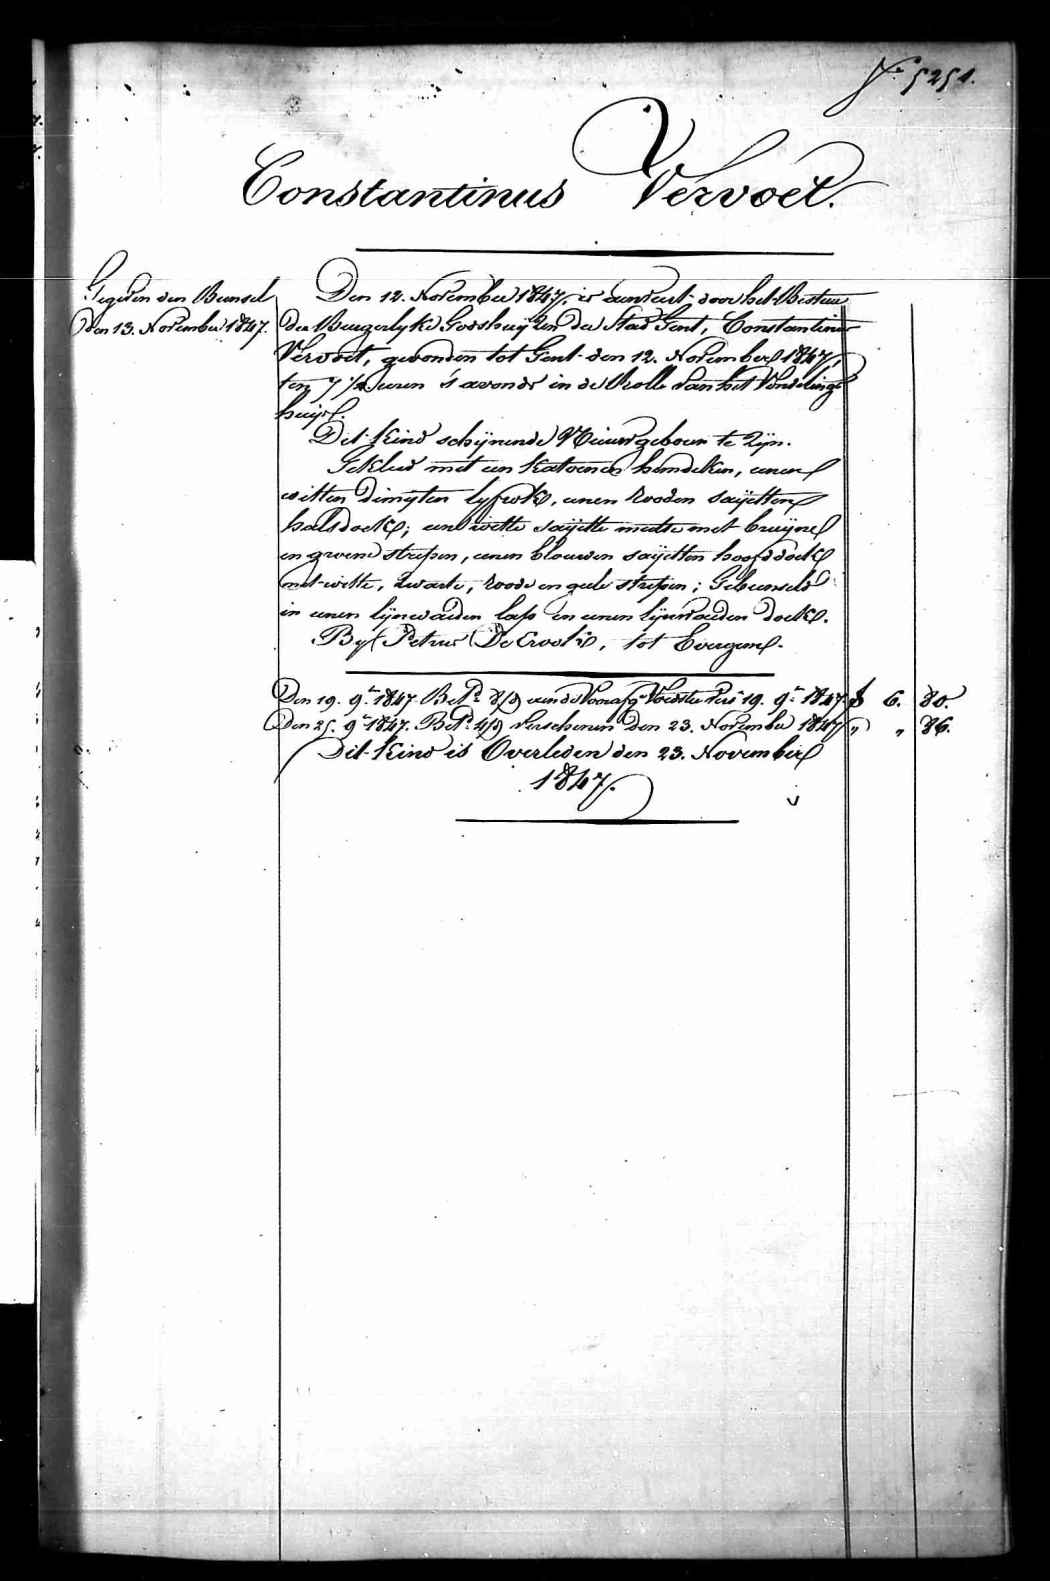 N.° 5251.
Constantinus Vervoet.
Gegeven den Bunsel
den 13. November 1847.
Den 12. November 1847, is aenveert door het Bestuur
der Burgerlyke Godshuijzen der Stad Gent, Constantinus
Vervoet, gevonden tot Gent den 12. November 1847,
ten 7 1/2 uren 's avonds in de Rolle van het Vondelings
huijs.
Dit Kind schijnende Nieuwgeboren te Zijn.
Gekleed met een katoenen hemdeken, eenen
witten dimyten lyfrok, eenen rooden saijetten
halsdoek; eene witte saijette mutse met bruijne
en groene strepen, eenen blauwen saijetten hoofddoek
met witte, zwarte, roode en gele strepen; Gebunseld
in eenen lijnwaeden lap en eenen lijnwaeden doek.
By Petrus De Croock, tot Evergem.
Den 19. 9.r 1847. Bet.d 8/9 aen de Voorafg.e Voedster Per 19. 9.r 1847. f 6. 80.
Den 25. 9.r 1847. Bet.d 4/9 Verschenen den 23. November 1847 " " 86.
Dit Kind is Overleden den 23. November
1847.